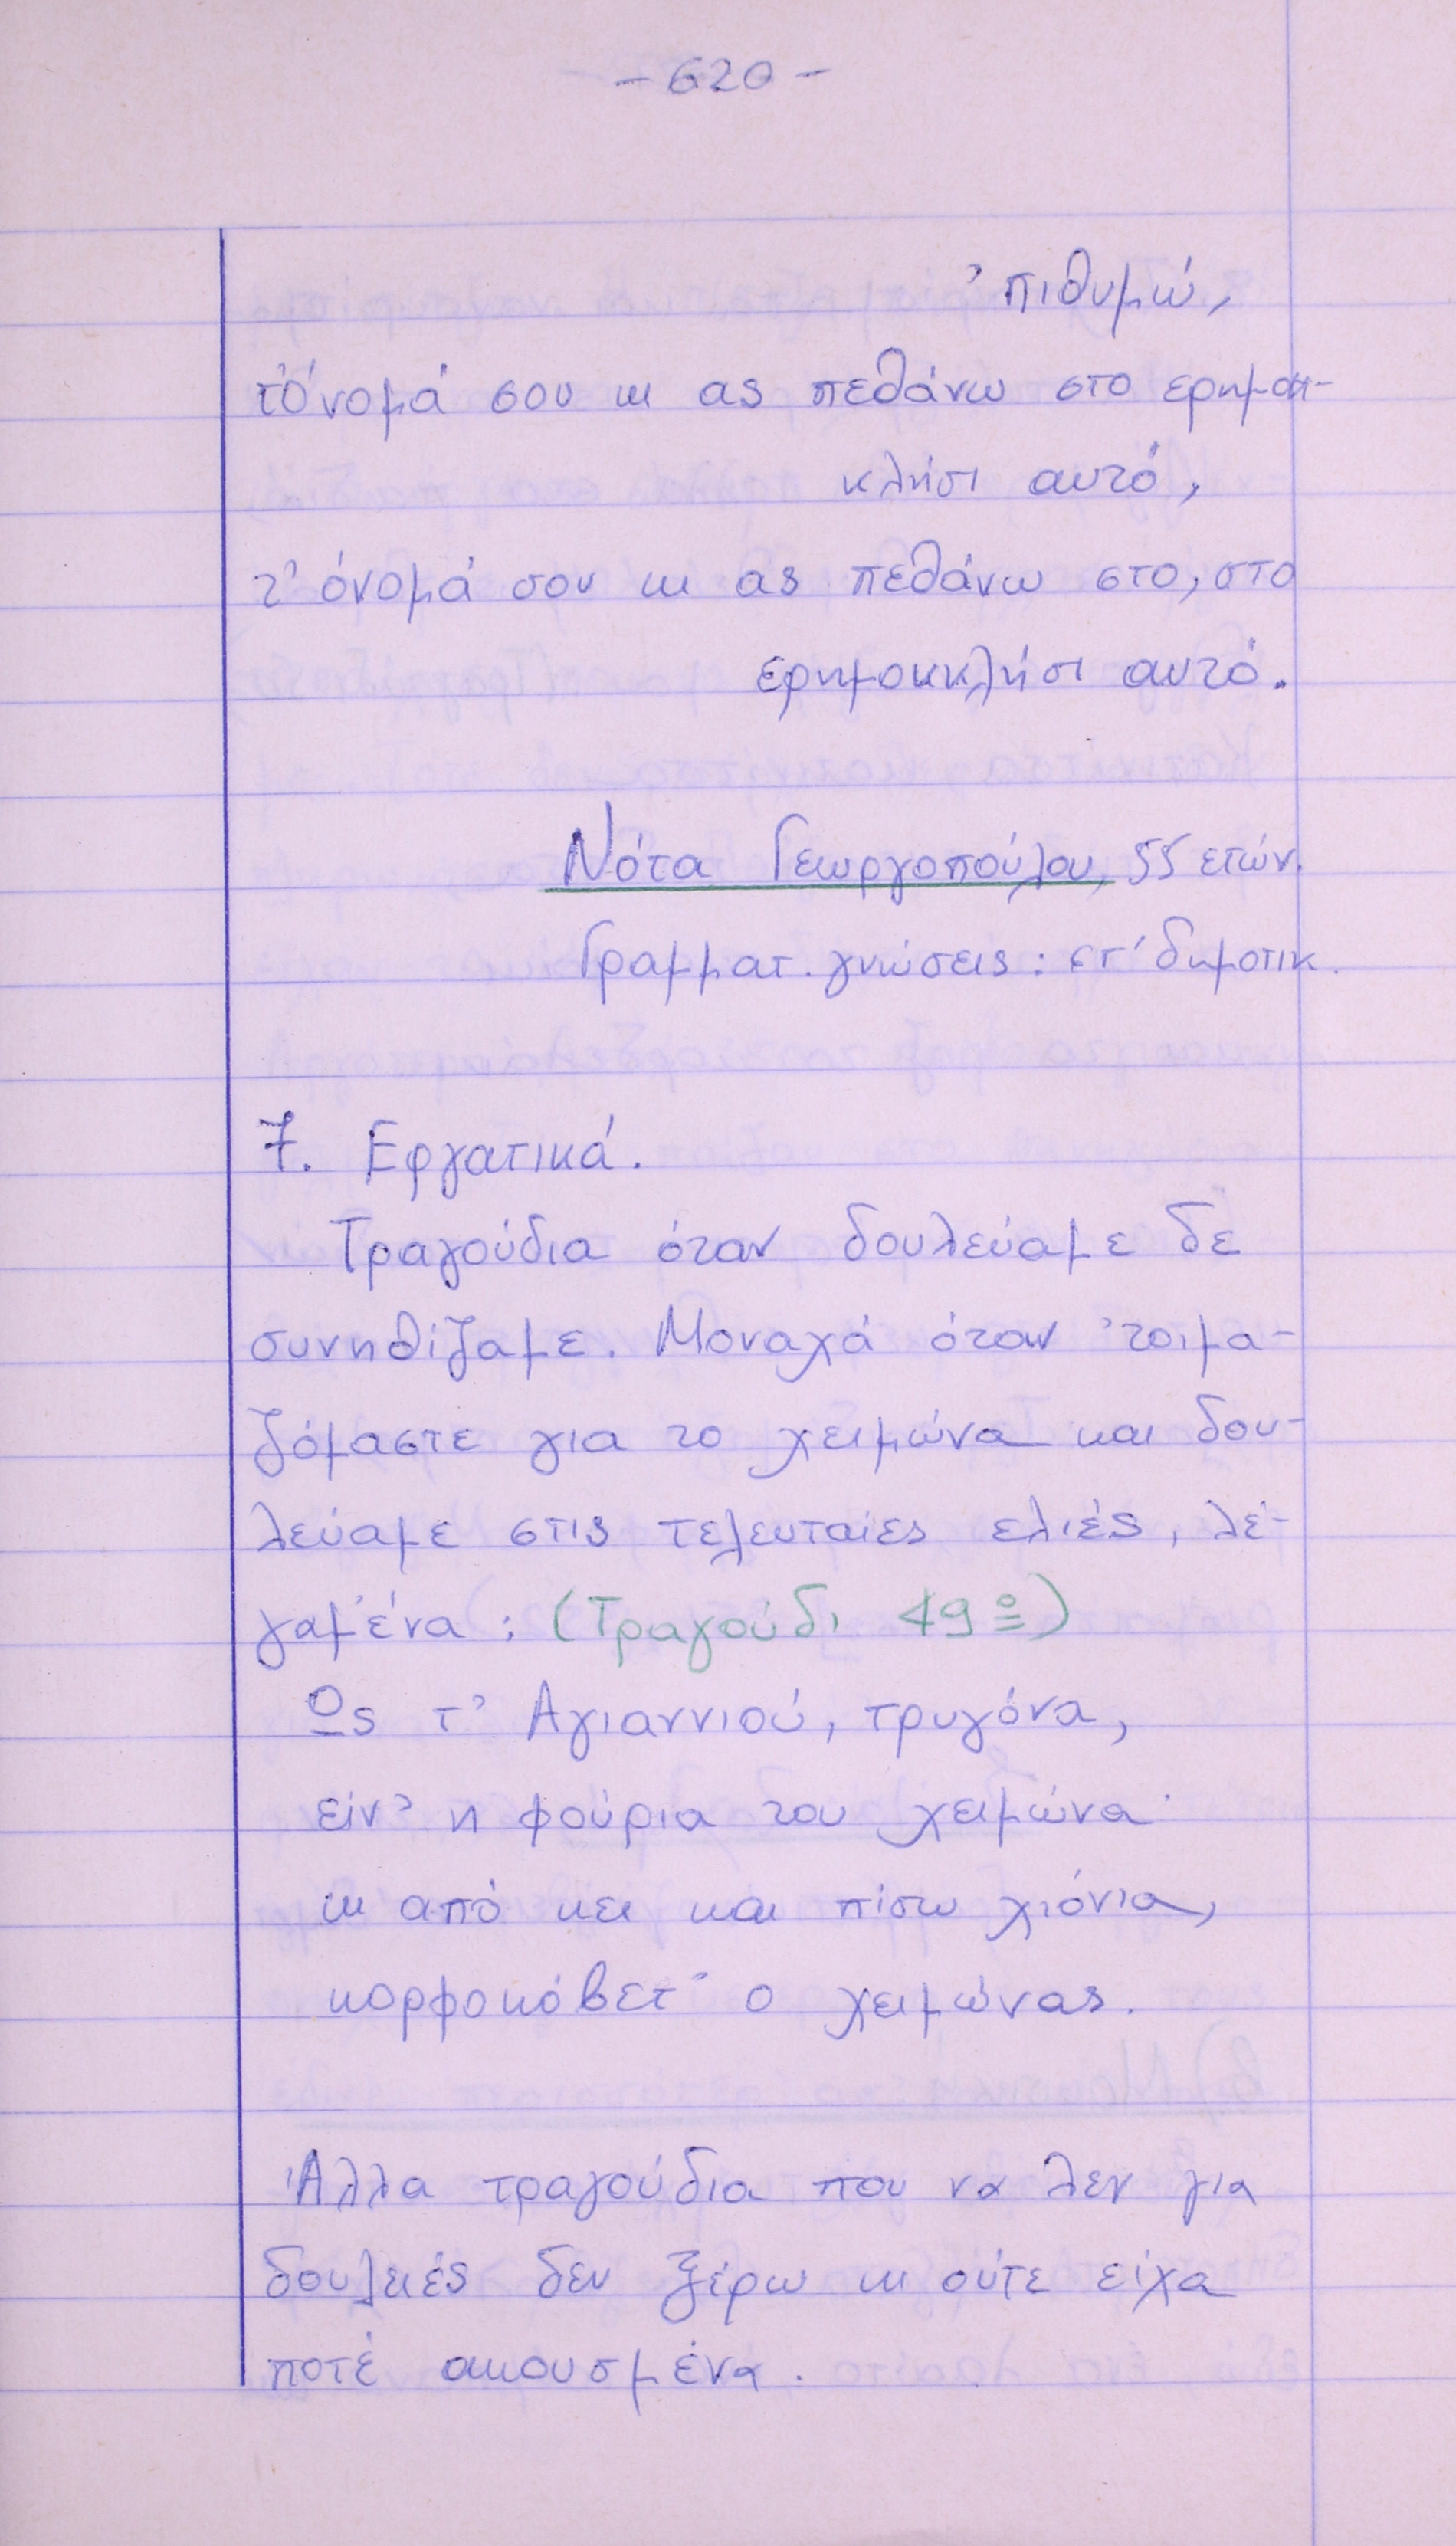 - 620 -
'πιθυμώ,
τ'όνομά σου κι ας πεθάνω στο ερημοκ-
κλήσι αυτό,
τ' όνομά σου κι ας πεθάνω στο, στο
ερημοκκλήσι αυτό.
Νότα Γεωργοπούλου, 55 ετών.
Γραμματ. γνώσεις: στ' δημοτικ.
7. Εργατικά.
Τραγούδια όταν δουλεύαμε δε
συνηθίζαμε. Μοναχά όταν 'τοιμα-
ζόμαστε για το χειμώνα και δου-
λεύαμε στις τελευταίες ελιές, λέ-
γαμ' ένα: (Τραγούδι 49º)
Ος τ' Αγιαννιού, τρυγόνα,
είν' η φούρια του χειμώνα·
κι από κει και πίσω χιόνια,
κορφοκόβετ' ο χειμώνας.
Άλλα τραγούδια που να λεν για
δουλειές δεν ξέρω κι ούτε είχα
ποτέ ακουσμένα.